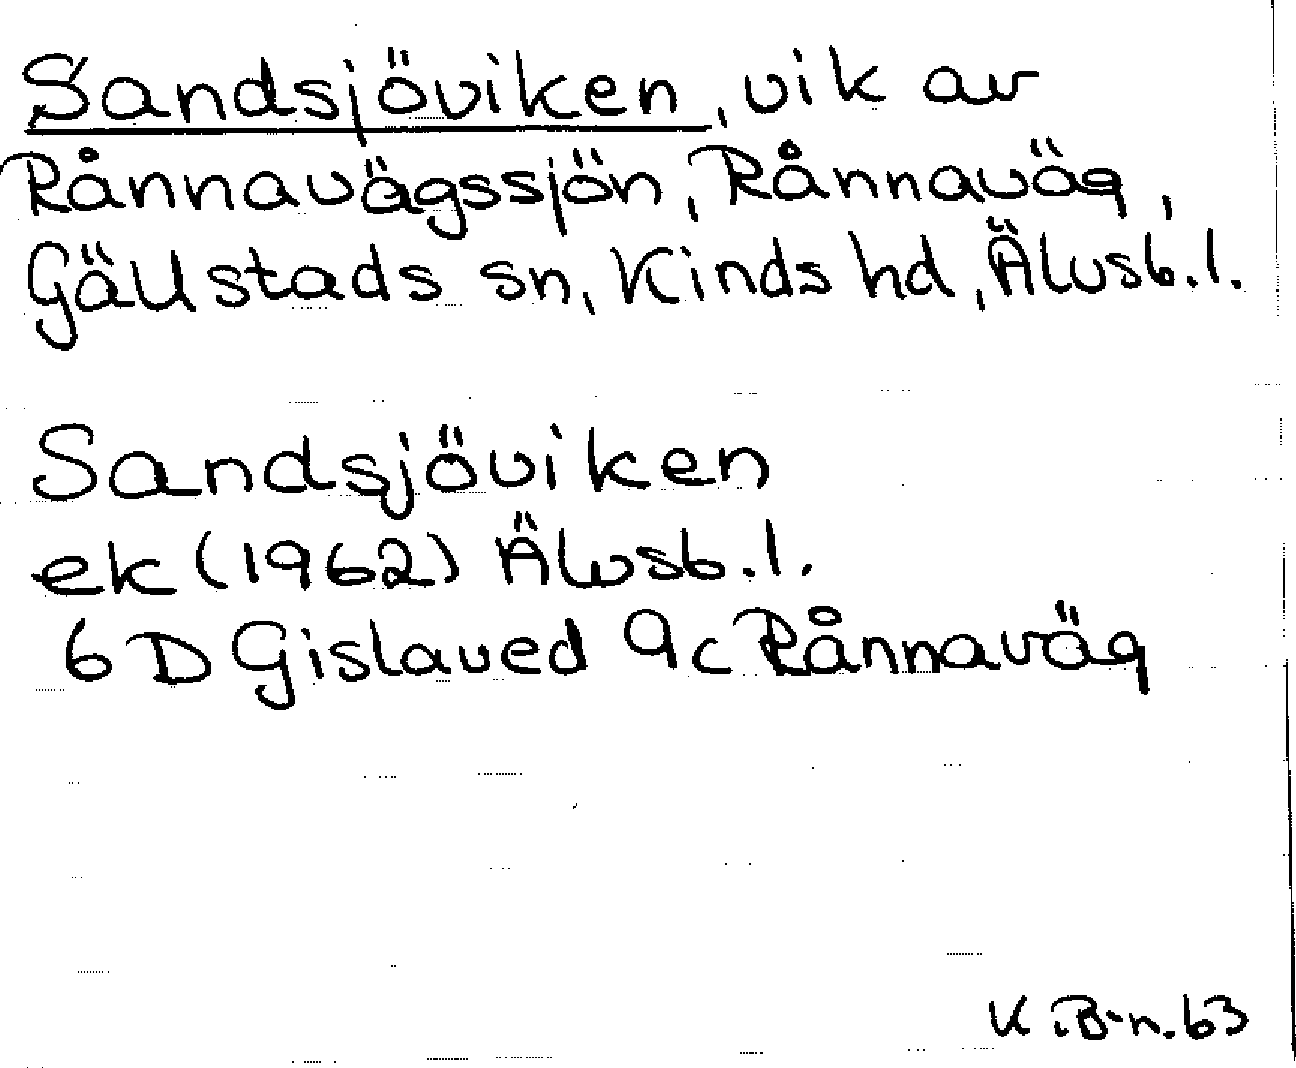 Sandsjöviken, vik av
Rånnavägssjön, Rånnaväg,
Gällstads sn, Kinds hd, Älvsb.l.
Sandsjöviken
ek (1962) Älvsb.l.
6 D Gislaved 9c Rånnaväg
K.B-n.63